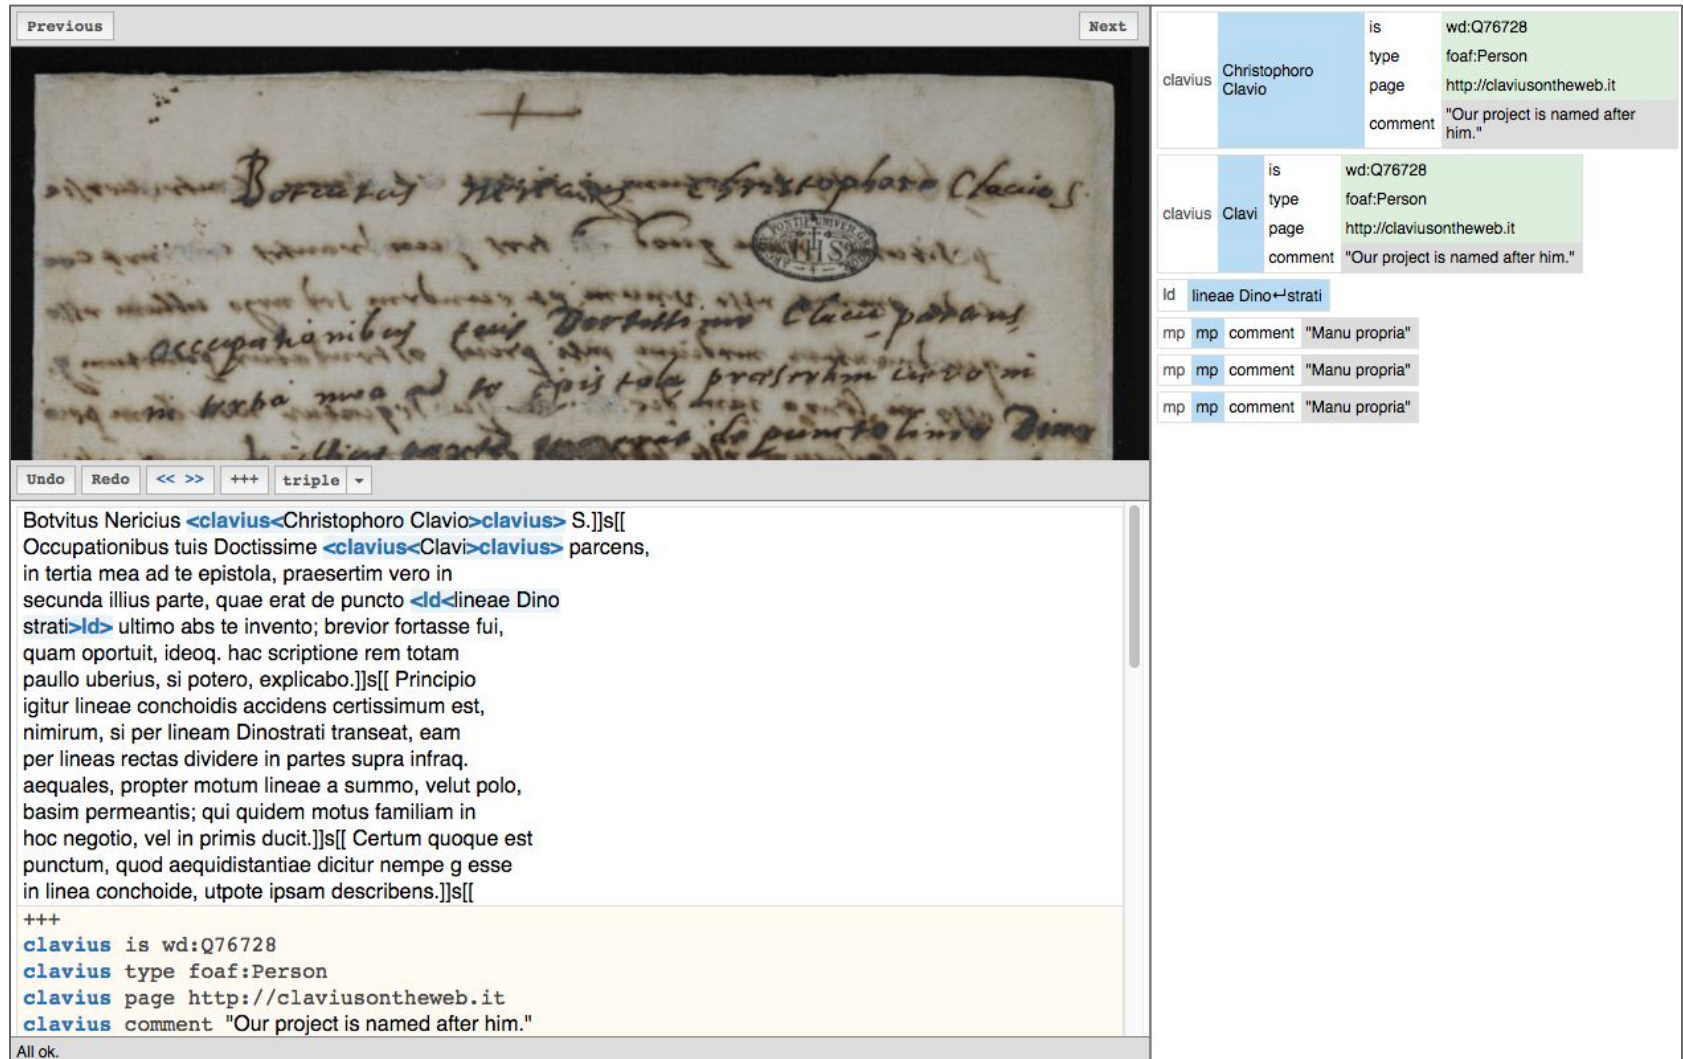 Previous
Next
Botvitus Nericius Christophoro Clavio S.
ARCH. PONTIF. UNIVER. GREG.
IHS
occupationibus tuis Doctissime Clavi parcens,
in tertia mea ad te epistola praesertim vero in
illius parte, quae erat de puncto lineae Dino
Undo
Redo
<< >>
+++
triple
Botvitus Nericius <clavius<Christophoro Clavio>clavius> S.]]s[[
Occupationibus tuis Doctissime <clavius<Clavi>clavius> parcens,
in tertia mea ad te epistola, praesertim vero in
secunda illius parte, quae erat de puncto <ld<lineae Dino
strati>ld> ultimo abs te invento; brevior fortasse fui,
quam oportuit, ideoq. hac scriptione rem totam
paullo uberius, si potero, explicabo.]]s[[ Principio
igitur lineae conchoidis accidens certissimum est,
nimirum, si per lineam Dinostrati transeat, eam
per lineas rectas dividere in partes supra infraq.
aequales, propter motum lineae a summo, velut polo,
basim permeantis; qui quidem motus familiam in
hoc negotio, vel in primis ducit.]]s[[ Certum quoque est
punctum, quod aequidistantiae dicitur nempe g esse
in linea conchoide, utpote ipsam describens.]]s[[
+++
clavius is wd:Q76728
clavius type foaf:Person
clavius page http://claviusontheweb.it
clavius comment "Our project is named after him."
All ok.
clavius
Christophoro
Clavio
is wd:Q76728
type foaf:Person
page http://claviusontheweb.it
comment "Our project is named after
him."
clavius Clavi
is wd:Q76728
type foaf:Person
page http://claviusontheweb.it
comment "Our project is named after him."
ld lineae Dino↵strati
mp mp comment "Manu propria"
mp mp comment "Manu propria"
mp mp comment "Manu propria"